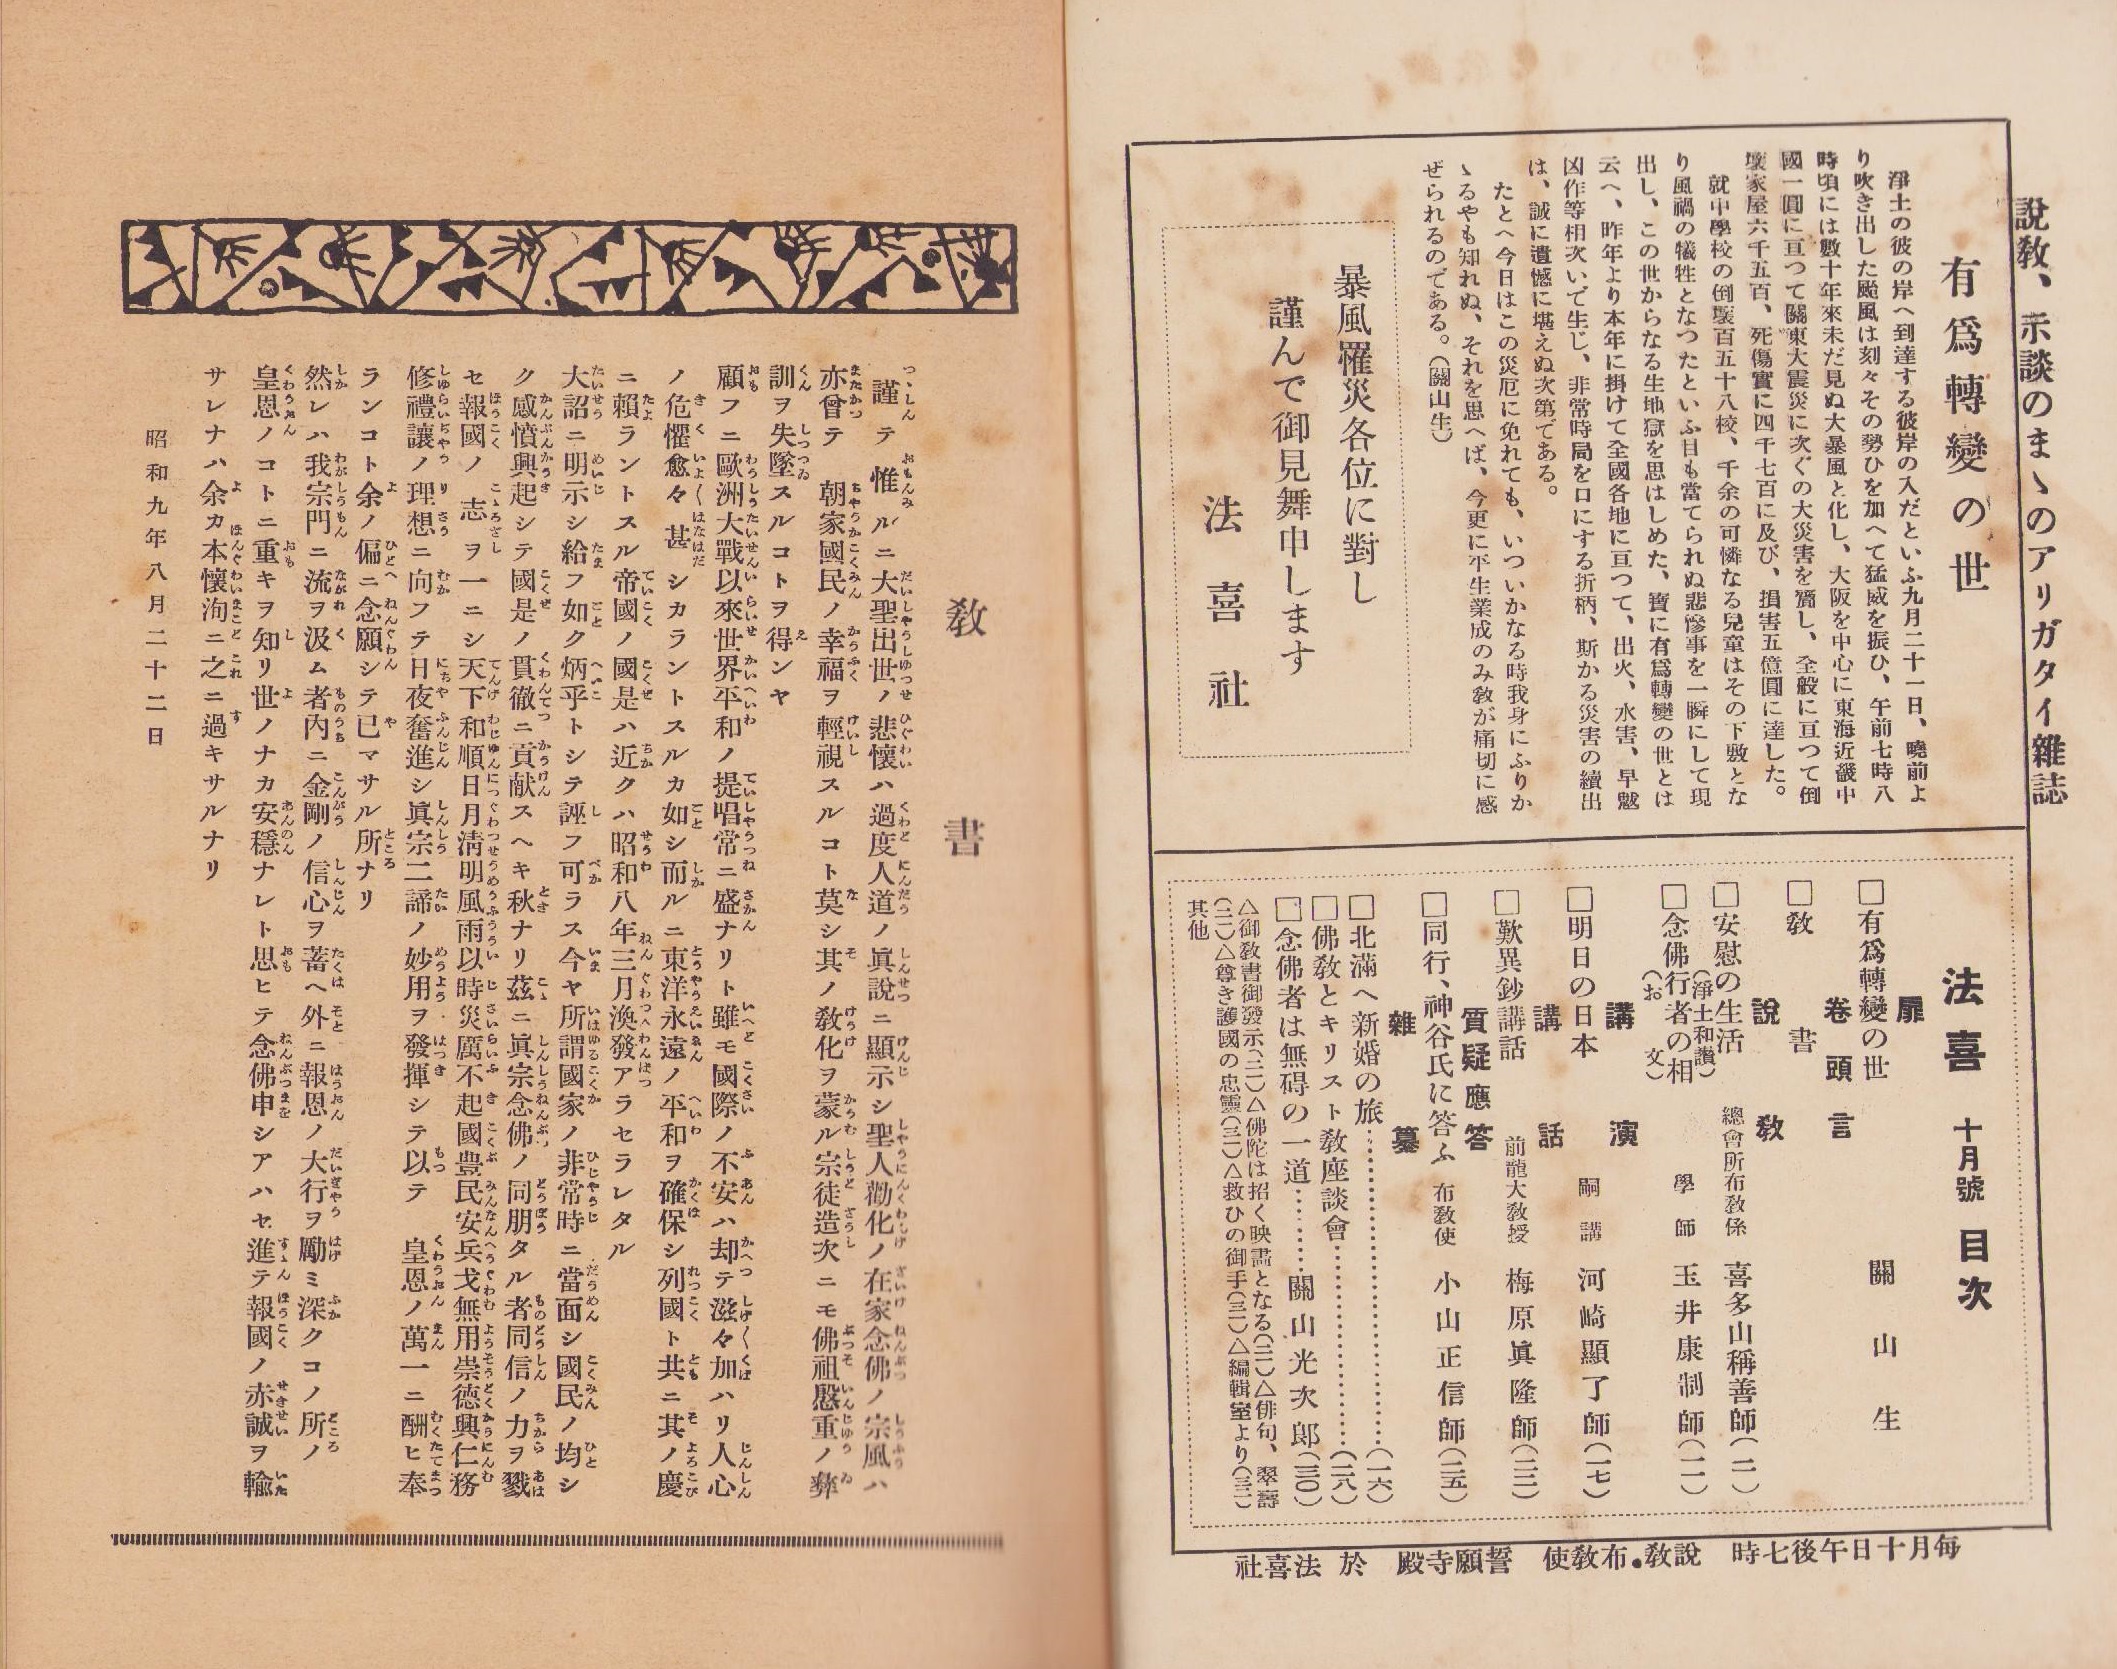 說敎、示談のまゝのアリガタイ雜誌
有爲轉變の世
淨土の彼の岸へ到達する彼岸の入だといふ九月二十一日、曉前よ
り吹き出した颱風は刻々その勢ひを加へて猛威を振ひ、午前七時八
時頃には數十年來未だ見ぬ大暴風と化し、大阪を中心に東海近畿中
國一圓に亘つて關東大震災に次ぐの大災害を齎し、全般に亘つて倒
壞家屋六千五百、死傷實に四千七百に及び、損害五億圓に達した。
就中學校の倒壞百五十八校、千余の可憐なる兒童はその下敷とな
り風禍の犧牲となつたといふ目も當てられぬ悲慘事を一瞬にして現
出し、この世からなる生地獄を思はしめた、實に有爲轉變の世とは
云へ、昨年より本年に掛けて全國各地に亘つて、出火、水害、旱魃
凶作等相次いで生じ、非常時局を口にする折柄、斯かる災害の續出
は、誠に遺憾に堪えぬ次第である。
たとへ今日はこの災厄に免れても、いついかなる時我身にふりか
ゝるやも知れぬ、それを思へば、今更に平生業成のみ敎が痛切に感
ぜられるのである。(關山生)
暴風罹災各位に對し
謹んで御見舞申します
法喜社
法喜 十月號 目次
扉
□有爲轉變の世 關山生
卷頭言
□敎書
說敎
□安慰の生活(淨土和讚) 總會所布敎係 喜多山稱善師(二)
□念佛行者の相(お文) 學師 玉井康制師(一一)
講演
□明日の日本 嗣講 河崎顯了師(一七)
講話
□歎異鈔講話 前龍大敎授 梅原眞隆師(二二)
質疑應答
□同行、神谷氏に答ふ 布敎使 小山正信師(二五)
雜纂
□北滿へ新婚の旅…………(一六)
□佛敎とキリスト敎座談會…………(二八)
□念佛者は無碍の一道………關山光次郞(三〇)
△御敎書御發示(二二)△佛陀は招く映畵となる(二二)△俳句、翠壽
(二二)△尊き護國の忠靈(三二)△救ひの御手(三二)△編輯室より(三二)
其他
每月十日午後七時 說敎・布敎使 誓願寺殿 於 法喜社
敎書
謹テ惟ルニ大聖出世ノ悲懷ハ過度人道ノ眞說ニ顯示シ聖人勸化ノ在家念佛ノ宗風ハ
亦曾テ 朝家國民ノ幸福ヲ輕視スルコト莫シ其ノ敎化ヲ蒙ル宗徒造次ニモ佛祖慇重ノ彝
訓ヲ失墜スルコトヲ得ンヤ
顧フニ歐洲大戰以來世界平和ノ提唱常ニ盛ナリト雖モ國際ノ不安ハ却テ滋々加ハリ人心
ノ危懼愈々甚シカラントスルカ如シ而ルニ東洋永遠ノ平和ヲ確保シ列國ト共ニ其ノ慶
ニ賴ラントスル帝國ノ國是ハ近クハ昭和八年三月渙發アラセラレタル
大詔ニ明示シ給フ如ク炳乎トシテ誣フ可ラス今ヤ所謂國家ノ非常時ニ當面シ國民ノ均シ
ク感憤興起シテ國是ノ貫徹ニ貢献スヘキ秋ナリ茲ニ眞宗念佛ノ同朋タル者同信ノ力ヲ戮
セ報國ノ志ヲ一ニシ天下和順日月淸明風雨以時災厲不起國豊民安兵戈無用崇德興仁務
修禮讓ノ理想ニ向フテ日夜奮進シ眞宗二諦ノ妙用ヲ發揮シテ以テ 皇恩ノ萬一ニ酬ヒ奉
ランコト余ノ偏ニ念願シテ已マサル所ナリ
然レハ我宗門ニ流ヲ汲ム者內ニ金剛ノ信心ヲ蓄ヘ外ニ報恩ノ大行ヲ勵ミ深クコノ所ノ
皇恩ノコトニ重キヲ知リ世ノナカ安穩ナレト思ヒテ念佛申シアハセ進テ報國ノ赤誠ヲ輸
サレナハ余カ本懷洵ニ之ニ過キサルナリ
昭和九年八月二十二日